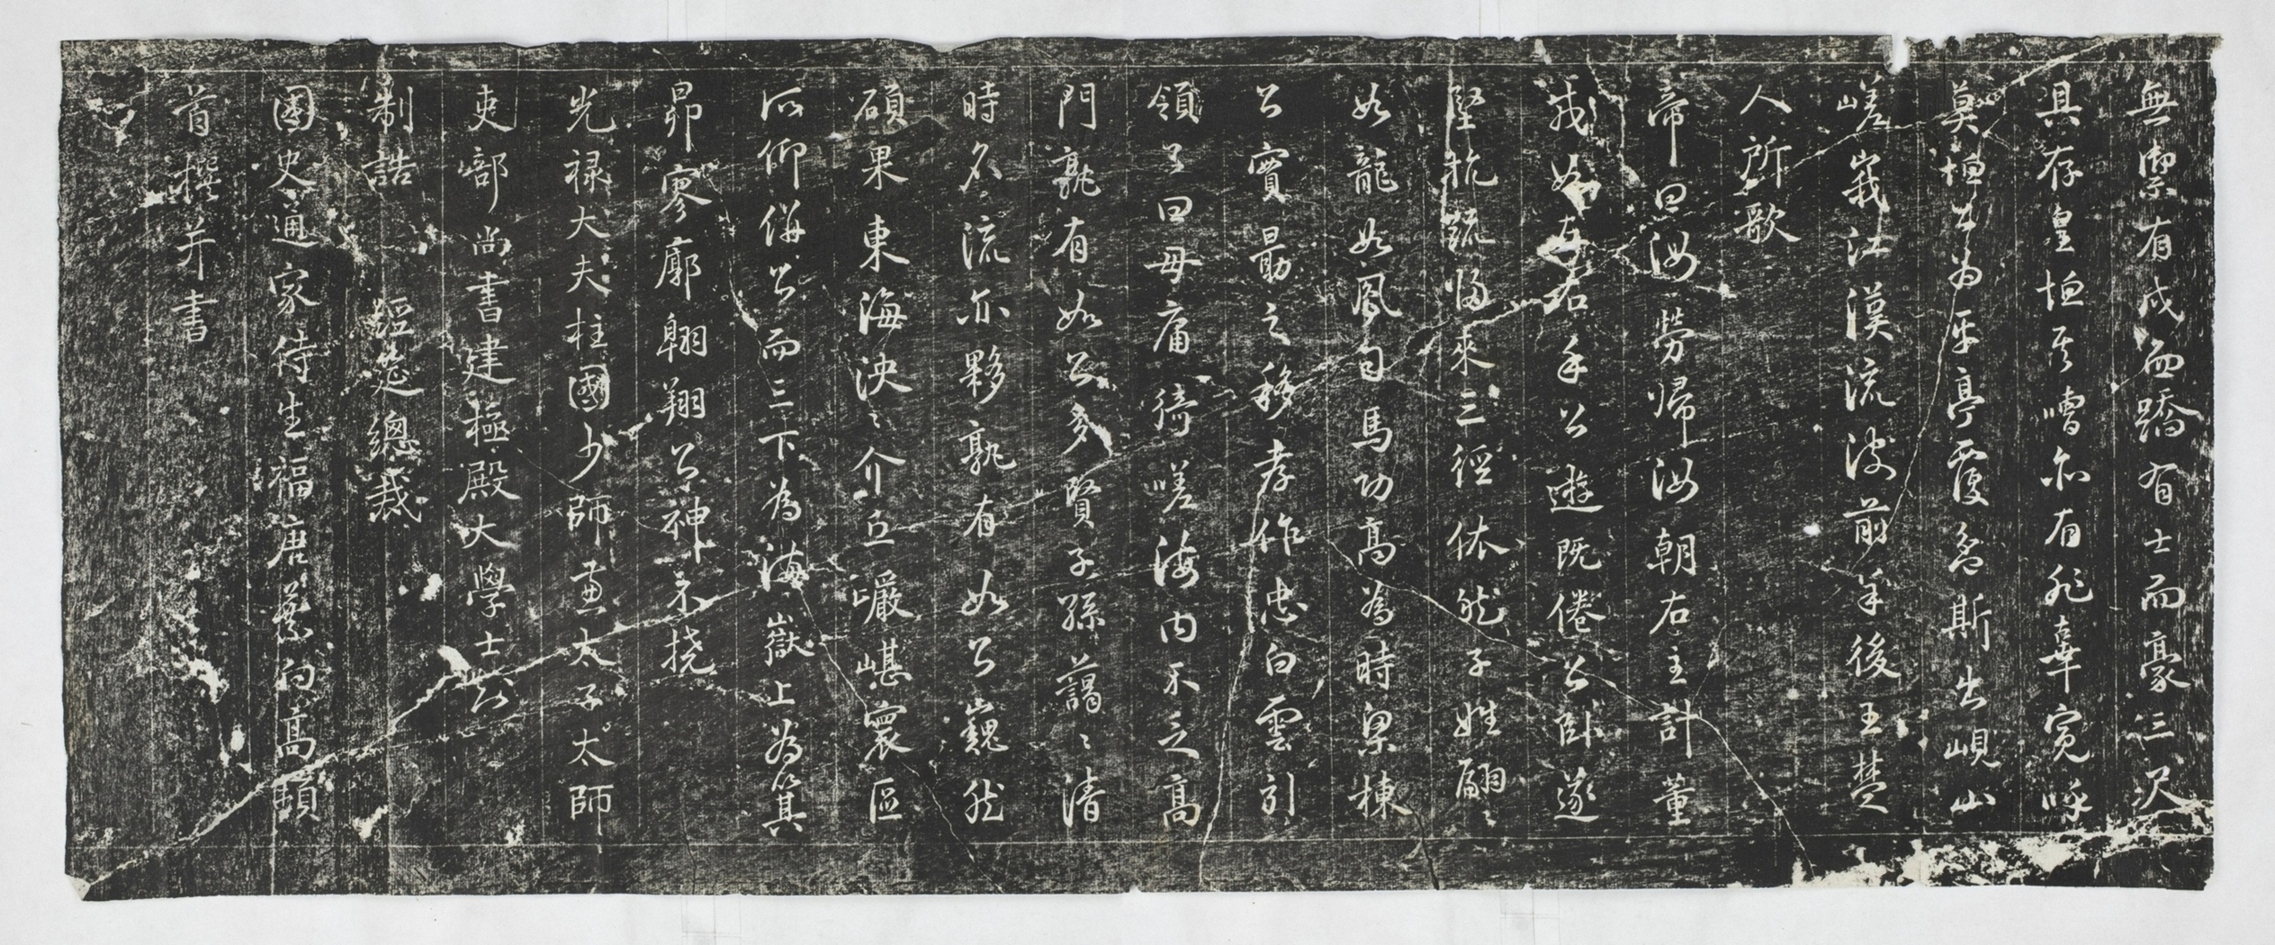 無禦有戎而蹻有士而豪三泯
具存皇恤其嘈亦有飛章冤呼
莫恤公為平亭覆盆斯出峴山
嵯峩江漢流波前羊後王楚
人所歌
帝曰汝勞歸汝朝右主計董
戎如左右手公遊既倦公卧遂
堅抗疏歸來三徑依然子姓翩〻
如龍如鳳司馬功高為時梁棟
公實勗之移孝作忠白雲引
領公曰毋庸猗嗟海内不乏高
門孰有如公多賢子孫藹〻清
時名流亦夥孰有如公巍然
碩果東海泱〻介丘巖嵁寰區
所仰併公而三下為海嶽上為箕
昴寥廓翺翔公神不撓
光祿大夫柱國少師兼太子太師
吏部尚書建極殿大學士知
制誥 經筵總裁
國史通家侍生福唐葉向高頓
首撰并書